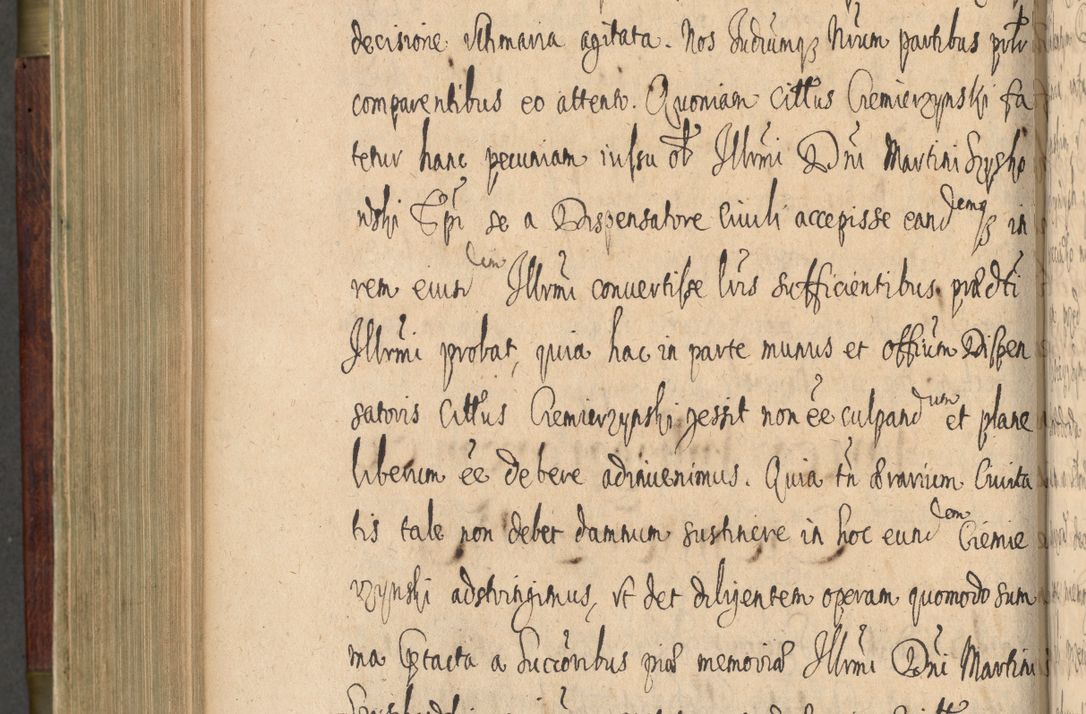 decisione vltimaria agitata. Nos Iudiumqȝ Nrum partibus pntr
comparentibus eo attento. Quoniam cittus Ciemierzynski fa
tetur hanc pecuniam iussu ob Illrmi Dni Martini Szysko
wski Epi se a Dispensatore Ciuili accepisse eandemqȝ in
rem eiusdem Illrmi conuertisse lris sufficientibus prædti
Illrmi probat, quia hac in parte munus et offium Dispen
satoris Cittus Ciemierzynski gessit non ee culpandum et plane
liberum ee debere adinuenimus. Quia tn ærarium Ciuita
tis tale non debet damnum sustinere in hoc eundem Ciemie
rzynski adstringimus, vt det diligentem operam quomodo sum
ma Cptacta a Succoribus piæ memoriæ Illrmi Dni Martini